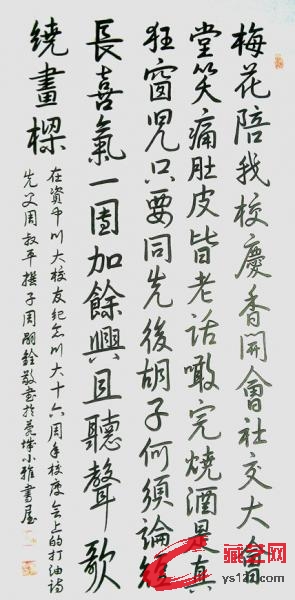 梅花陪我校慶香開會社交大會
堂笑痛肚皮皆老話噉完燒酒是真
狂窗児只要同先後胡子何須論短
長喜氣一團加餘興且聽聲歌
繞畫樑
在資中川大校友纪念川大十六周年校慶会上的打油诗
先父周叔平撰子周嗣銓敬書於小雅書屋